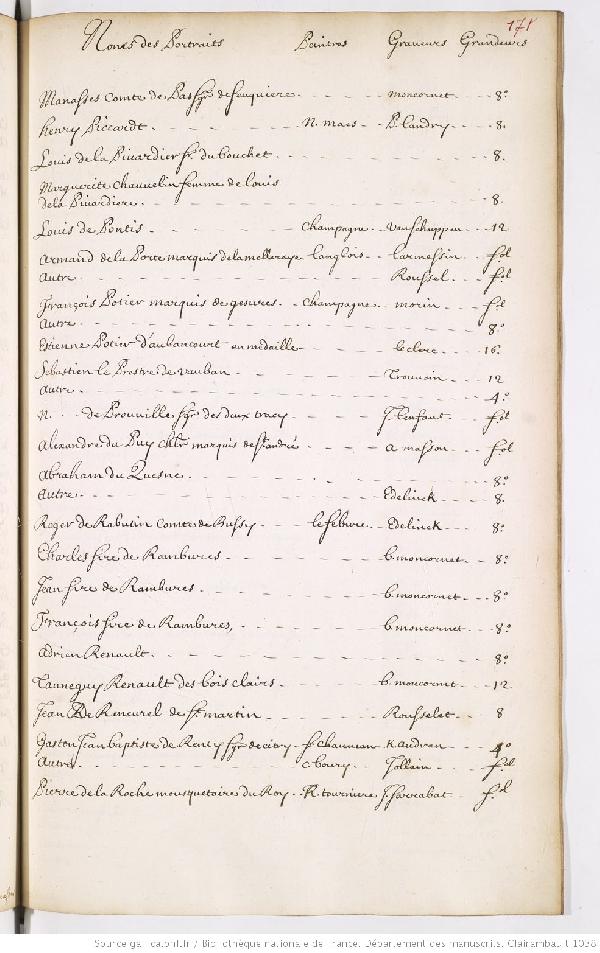 171
Noms des Portraits Peintres Graveurs Grandeurs
Manasses Comte de Pas sgr. de feuquiere moncornet 8.°
henry Piccardt N. maes P. landry 8.
Louis de la Pivardier sr. du bouchet 8.
Marguerite Chauvelin femme de louis
de la Pivardiere 8.
Louis de Pontis Champagne Vanschuppen 12
Armand de la Porte marquis de la melleraye langlois larmessin fol
Autre Roussel fol
François Potier marquis de gesvres Champagne morin fol
Autre 8°
Etienne Potier d'aubancourt en medaille leclerc 16.°
Sebastien le Prestre de Vauban Trouvain 12
Autre 4.°
N. de Prouville sgr. des deux tracy J. lenfant fol
Alexandre du Puy chlr. marquis de st. andré a masson fol
Abraham du Quesne 8°
Autre Edelinck 8.
Roger de Rabutin Comte de Bussy lefebvre Edelinck 8.°
Charles sire de Rambures b. moncornet 8.°
Jean sire de Rambures b. moncornet 8.°
François sire de Rambures, b. moncornet 8.°
Adrien Renault 8.°
Tanneguy Renault des bois clairs b. moncornet 12
Jean de Rencurel de st. martin Rousselet 8
Gaston Jean baptiste de Renty sgr. de citry sr. Chauveau K. audran 4°
Autre c boury Jollain fol
Pierre de la Roche mousquetaire du Roy R. tourniere J. sarrabat fol
Source gallica.bnf.fr / Bibliothèque nationale de France. Département des manuscrits. Clairambault 1038